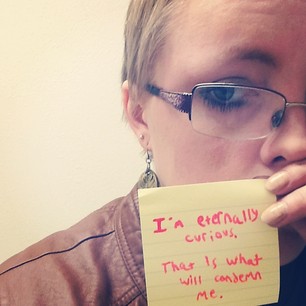 I'm eternally
curious.
That is what
will condemn
me.